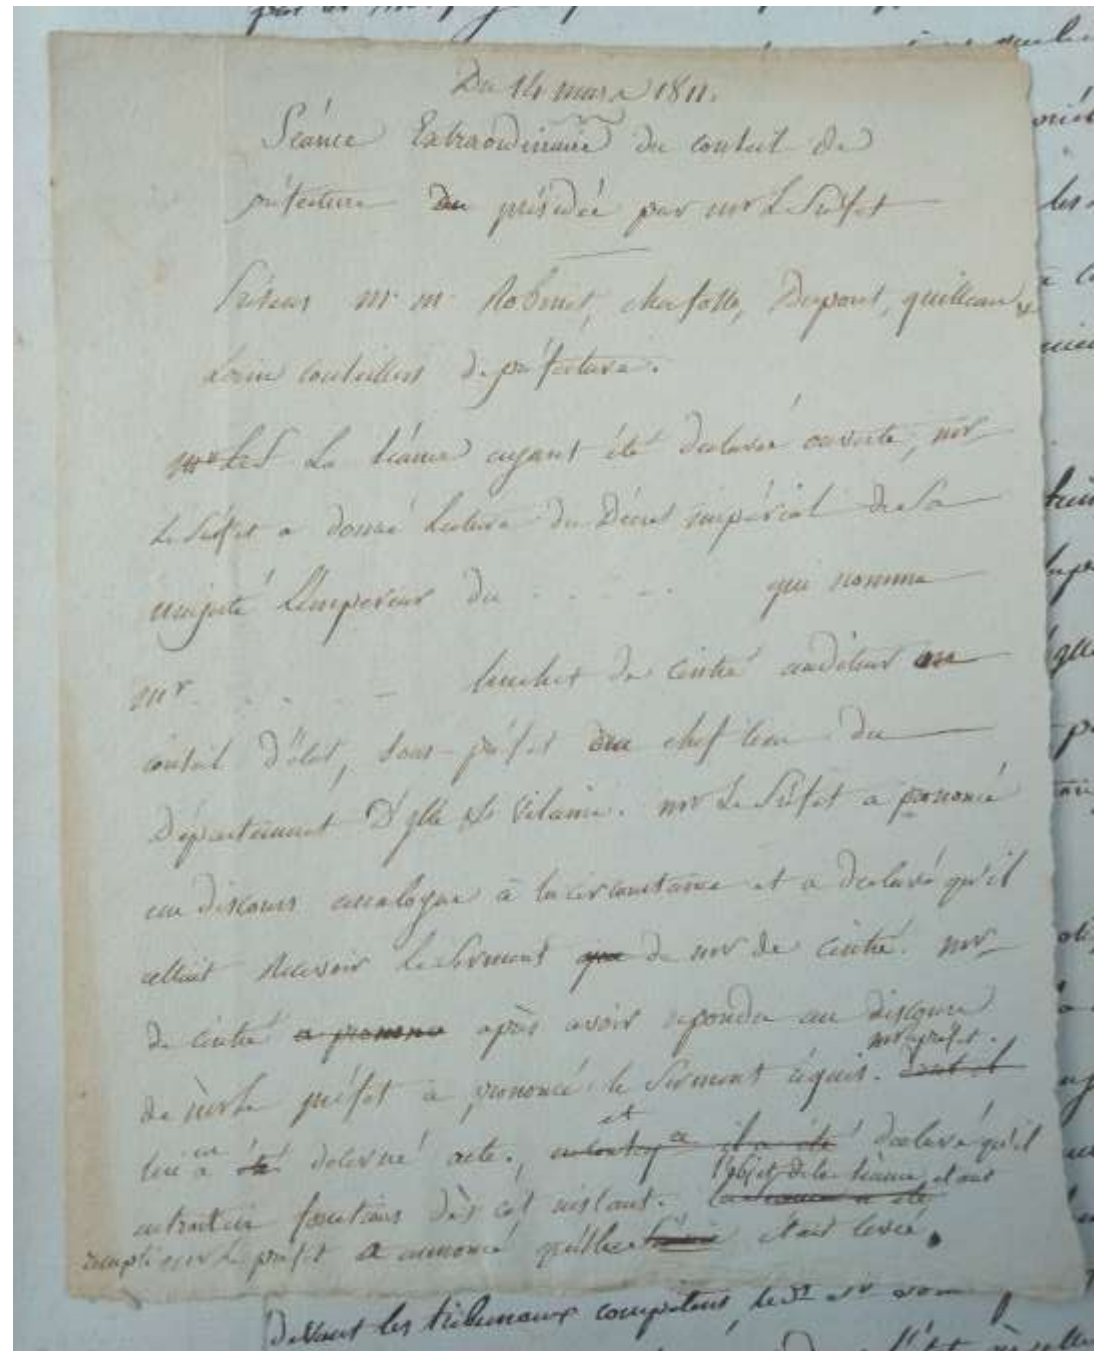 Du 14 mars 1811.
Séance Extraordinaire du conseil de
préfecture du présidée par mr Le Préfet
Présens mr. mr. Robinet, Dupont,
conseillers de préfecture.
mr Le P La séance ayant été déclarée ouverte, mr
Le Préfet a donné lecture du Décret impérial de Sa
majesté L'Empereur du . . . . . qui nomme
mr. . . . . de Cintré auditeur au
conseil d'état, Sous-préfet du chef lieu du
Département D'ylle & Vilaine. mr Le Préfet a prononcé
un discours analogue à la circonstance et a déclaré qu'il
allait recevoir le Serment que de mr de Cintré. mr
de Cintré a prononcé après avoir repondu au discours
de mr le préfet a prononcé le Serment requis. dont il mr le préfet.
lui en a été décerné acte, et il a été déclaré qu'il
entrait en fonctions dès cet instant. L'objet de la séance étant
rempli mr le préfet a annoncé qu'elle était levée.
Devant les tribunaux compétens,